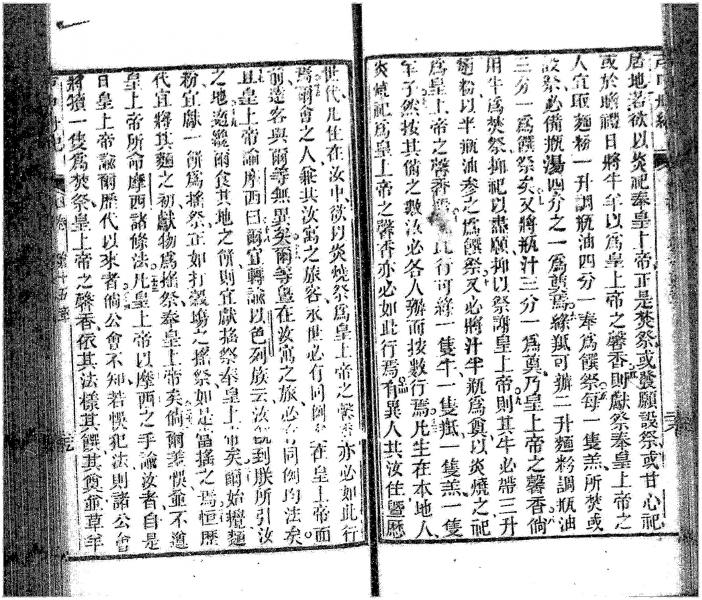 居地若欲以炎祀奉皇上帝正是焚祭或發願設祭或甘心祀
或於瞻禮日將牛羊以爲皇上帝之馨香則獻祭奉皇上帝之
人宜取麵粉一升調瓶油四分一奉爲饌祭每一隻羔所焚或
設祭必備瓶湯四分之一爲奠焉綿羝可擠二升麵粉調瓶油
三分一爲饌祭矣又將瓶汁三分一爲奠乃皇上帝之馨香倘
用牛爲焚祭抑祀以盡願抑以祭謝皇上帝則其牛必帶三升
麵粉以半瓶油參之爲饌祭又必將汁半瓶爲奠以炎燒之祀
爲皇上帝之馨香此行可綿一隻牛一隻羝一隻羔一隻
子然按其備之數汝必各人辦而按數行焉凡生在本地人
炎燒祀爲皇上帝之馨香亦必如此行焉有異人共汝住曁歷
世代凡住在汝中欲以炎燒祭爲皇上帝之馨香亦必如此行
焉爾會之人兼共汝寓之旅客永世必有同例在皇上帝面
前遠客與爾等無異矣爾等曁在汝寓之旅必有同例均法矣
且皇上帝諭摩西曰爾宜轉諭以色列族云汝既到朕所引汝
之地迨爾食其地之餅則宜獻搖祭奉皇上帝矣爾始攪麵
粉宜獻一餅爲搖祭正如打穀場之搖祭如是當搖之焉恒歷
代宜將其麵之初獻物爲搖祭奉皇上帝矣倘爾差悞並不遵
皇上帝所命摩西諸條法凡皇上帝以摩西之手諭汝者自是
日皇上帝諭爾歷代以來者倘公會不知若悞犯法則諸公會
將犢一隻爲焚祭皇上帝之馨香依其法樣其饌其奠並草羊